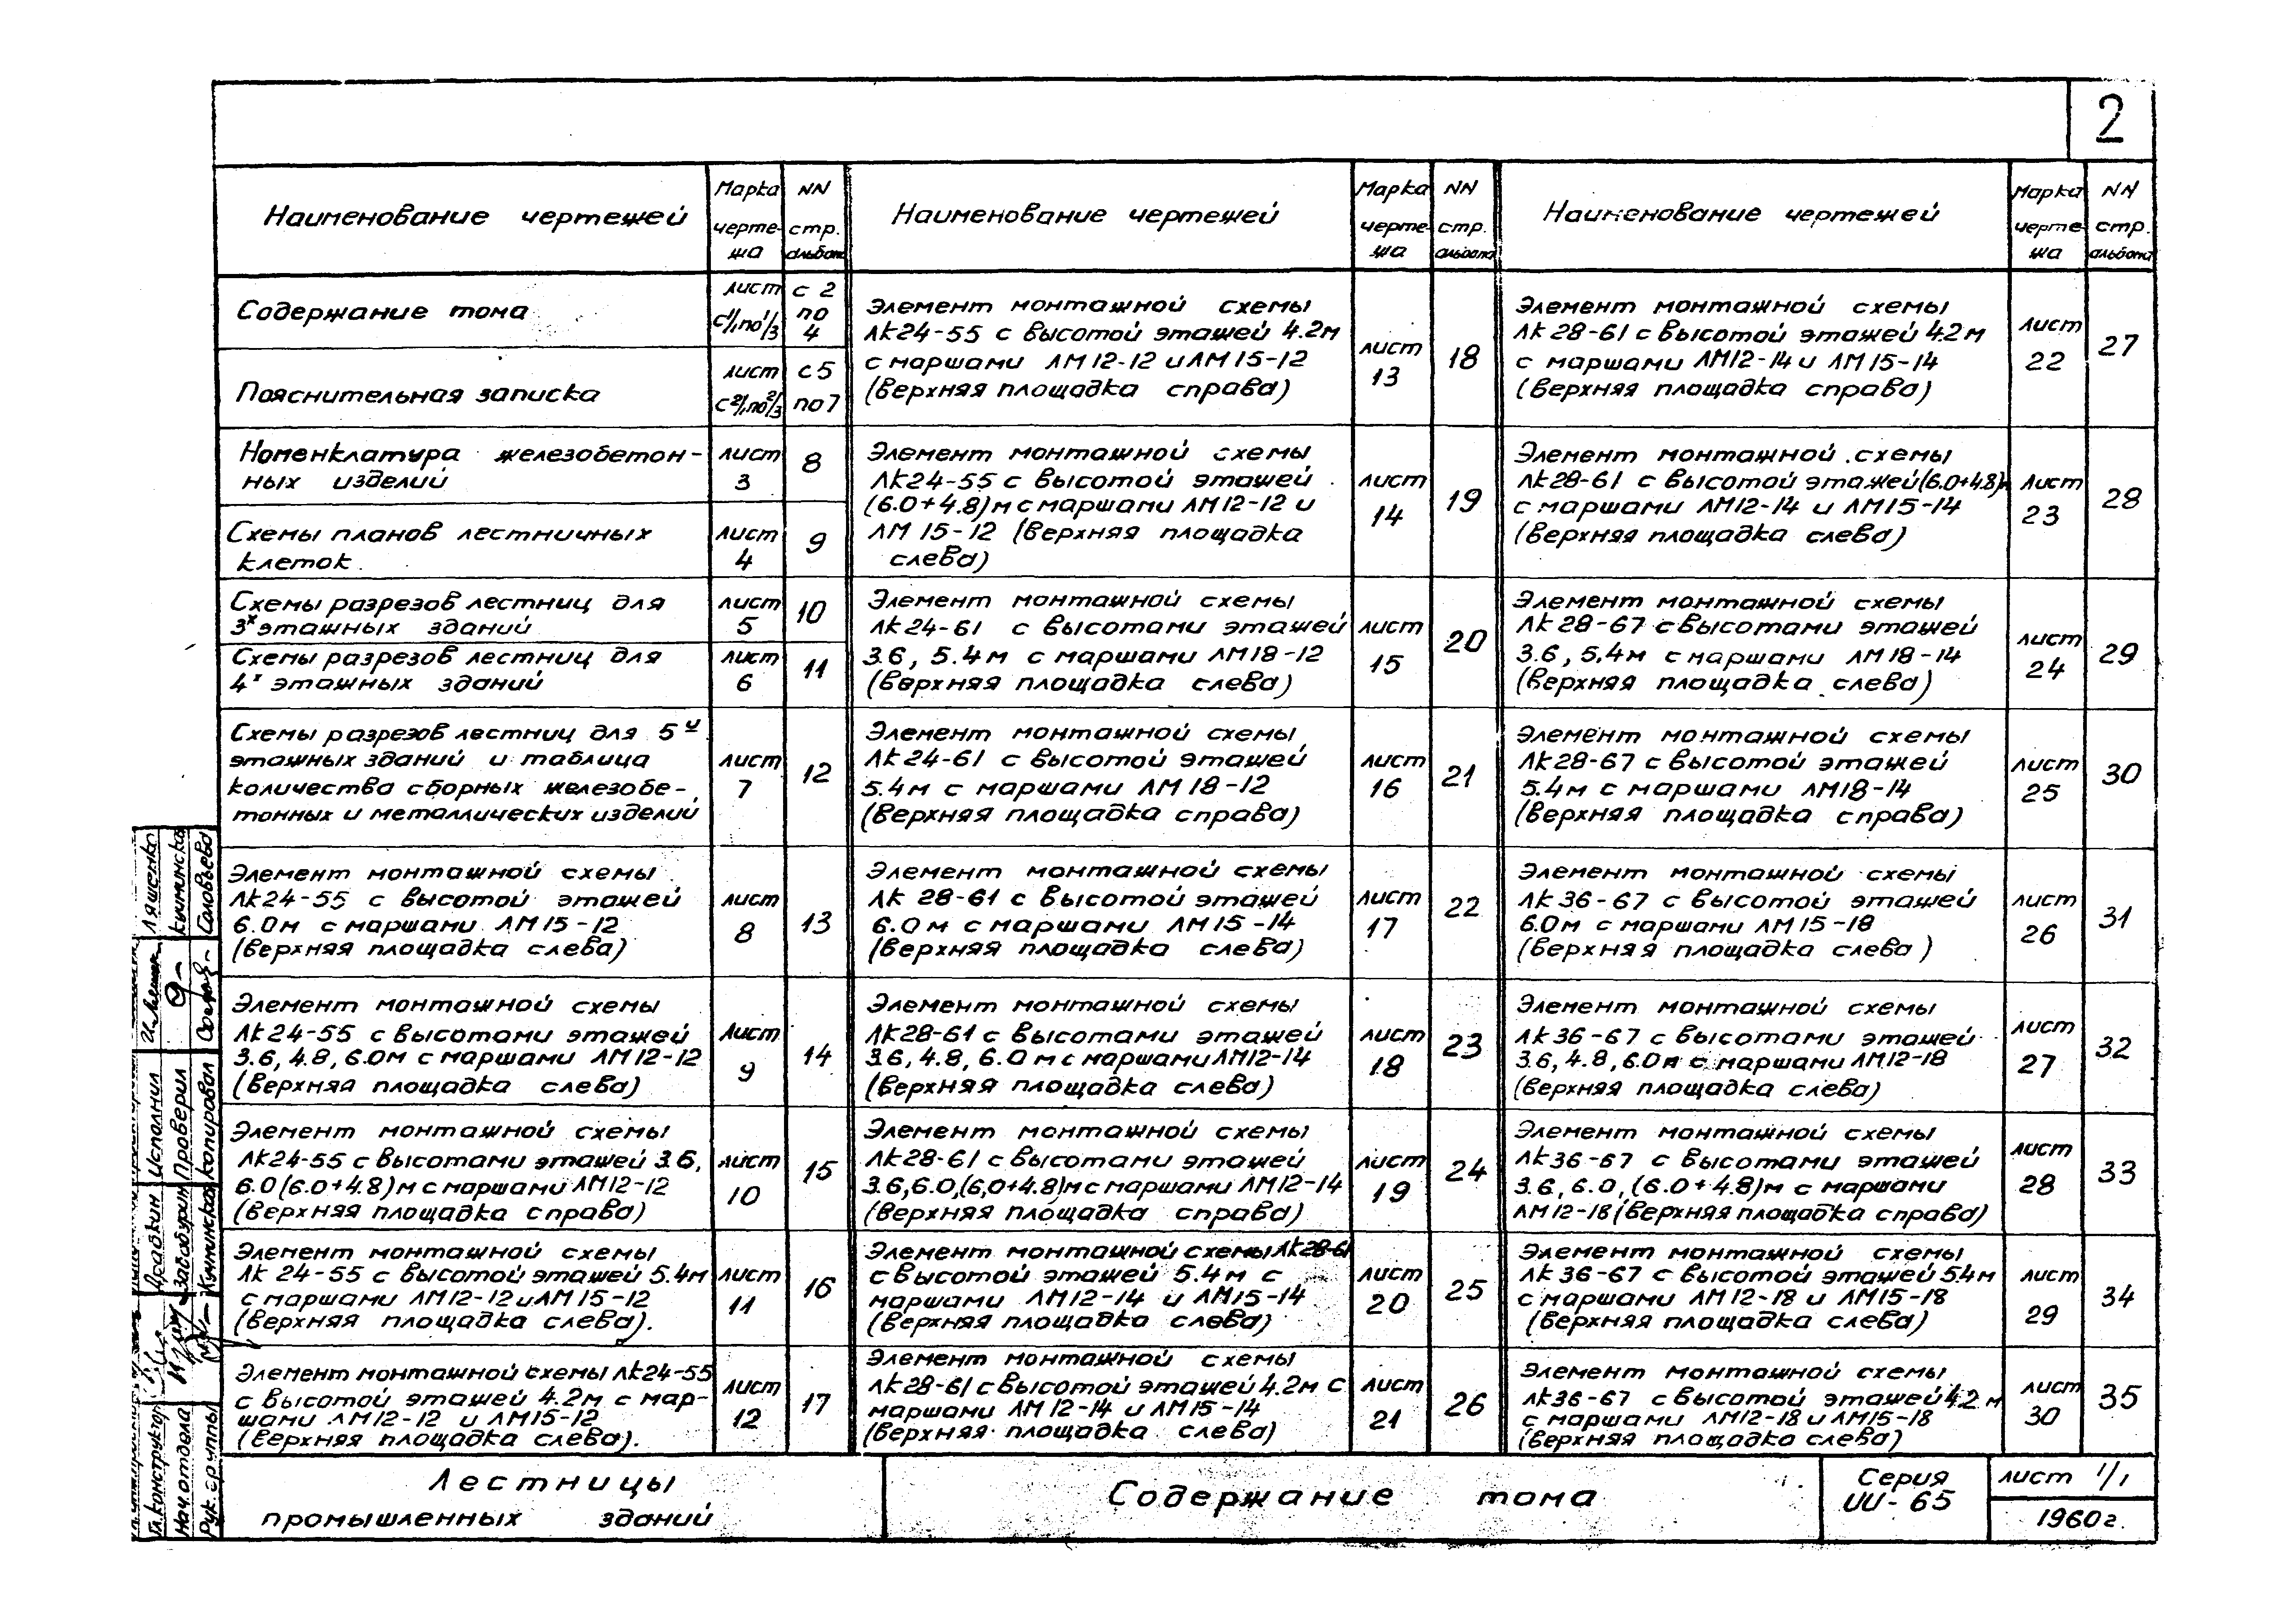 2
Наименование чертежей
Марка
черте-
жа
NN
стр.
альбома
Содержание тома
лист
с 1/1 по 1/3
с 2
по
4
Пояснительная записка
лист
с 2/1 по 2/3
с 5
по 7
Номенклатура железобетон-
ных изделий
лист
3
8
Схемы планов лестничных
клеток
лист
4
9
Схемы разрезов лестниц для
3х этажных зданий
лист
5
10
Схемы разрезов лестниц для
4х этажных зданий
лист
6
11
Схемы разрезов лестниц для 5и
этажных зданий и таблица
количества сборных железобе-
тонных и металлических изделий
лист
7
12
Элемент монтажной схемы
ЛК24-55 с высотой этажей
6.0м с маршами ЛМ15-12
(верхняя площадка слева)
лист
8
13
Элемент монтажной схемы
ЛК24-55 с высотами этажей
3.6, 4.8, 6.0м с маршами ЛМ12-12
(верхняя площадка слева)
лист
9
14
Элемент монтажной схемы
ЛК24-55 с высотами этажей 3.6,
6.0 (6.0+4.8)м с маршами ЛМ12-12
(верхняя площадка справа)
лист
10
15
Элемент монтажной схемы
ЛК 24-55 с высотой этажей 5.4м
с маршами ЛМ12-12 и ЛМ15-12
(верхняя площадка слева).
лист
11
16
Элемент монтажной схемы ЛК24-55
с высотой этажей 4.2м с мар-
шами ЛМ12-12 и ЛМ15-12
(верхняя площадка слева).
лист
12
17
Наименование чертежей
Марка
черте-
жа
NN
стр.
альбома
Элемент монтажной схемы
ЛК24-55 с высотой этажей 4.2м
с маршами ЛМ12-12 и ЛМ15-12
(верхняя площадка справа)
лист
13
18
Элемент монтажной схемы
ЛК24-55 с высотой этажей
(6.0+4.8)м с маршами ЛМ12-12 и
ЛМ 15-12 (верхняя площадка
слева)
лист
14
19
Элемент монтажной схемы
ЛК24-61 с высотами этажей
3.6, 5.4м с маршами ЛМ18-12
(верхняя площадка слева)
лист
15
20
Элемент монтажной схемы
ЛК24-61 с высотой этажей
5.4м с маршами ЛМ18-12
(верхняя площадка справа)
лист
16
21
Элемент монтажной схемы
ЛК 28-61 с высотой этажей
6.0м с маршами ЛМ15-14
(верхняя площадка слева)
лист
17
22
Элемент монтажной схемы
ЛК28-61 с высотами этажей
3.6, 4.8, 6.0м с маршами ЛМ12-14
(верхняя площадка слева)
лист
18
23
Элемент монтажной схемы
ЛК28-61 с высотами этажей
3.6, 6.0, (6,0+4.8)м с маршами ЛМ12-14
(верхняя площадка справа)
лист
19
24
Элемент монтажной схемы ЛК28-61
с высотой этажей 5.4м с
маршами ЛМ12-14 и ЛМ15-14
(верхняя площадка слева)
лист
20
25
Элемент монтажной схемы
ЛК28-61 с высотой этажей 4.2м с
маршами ЛМ12-14 и ЛМ15-14
(верхняя площадка слева)
лист
21
26
Наименование чертежей
Марка
черте-
жа
NN
стр.
альбома
Элемент монтажной схемы
ЛК 28-61 с высотой этажей 4.2м
с маршами ЛМ12-14 и ЛМ15-14
(верхняя площадка справа)
лист
22
27
Элемент монтажной схемы
ЛК28-61 с высотой этажей (6.0+4.8)м
с маршами ЛМ12-14 и ЛМ15-14
(верхняя площадка слева)
лист
23
28
Элемент монтажной схемы
ЛК 28-67 с высотами этажей
3.6, 5.4м с маршами ЛМ18-14
(верхняя площадка слева)
лист
24
29
Элемент монтажной схемы
ЛК28-67 с высотой этажей
5.4м с маршами ЛМ18-14
(верхняя площадка справа)
лист
25
30
Элемент монтажной схемы
ЛК 36-67 с высотой этажей
6.0м с маршами ЛМ15-18
(верхняя площадка слева)
лист
26
31
Элемент монтажной схемы
ЛК 36-67 с высотами этажей
3.6, 4.8, 6.0м с маршами ЛМ12-18
(верхняя площадка слева)
лист
27
32
Элемент монтажной схемы
ЛК36-67 с высотами этажей
3.6, 6.0, (6.0+4.8)м с маршами
ЛМ12-18 (верхняя площадка справа)
лист
28
33
Элемент монтажной схемы
ЛК 36-67 с высотой этажей 5.4м
с маршами ЛМ12-18 и ЛМ15-18
(верхняя площадка слева)
лист
29
34
Элемент монтажной схемы
ЛК36-67 с высотой этажей 4.2м
с маршами ЛМ12-18 и ЛМ15-18
(верхняя площадка слева)
лист
30
35
Лестницы
промышленных зданий
Содержание тома
Серия
ИИ-65
лист 1/1
1960г.
Гл. конструктор
Нач. отдела
Рук. группы
Исполнил
Проверил
Копировал
Ляшенко
Кучминская
Соловьева